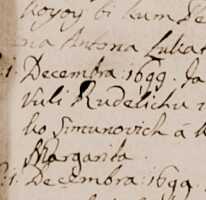 koyoy bi kum Pe
na Antona Lukat
1. Decembra: 1699. Ja
Vuli Rudelichu i
ko Simunovich á k
Margarita.
1. Decembra: 1699.